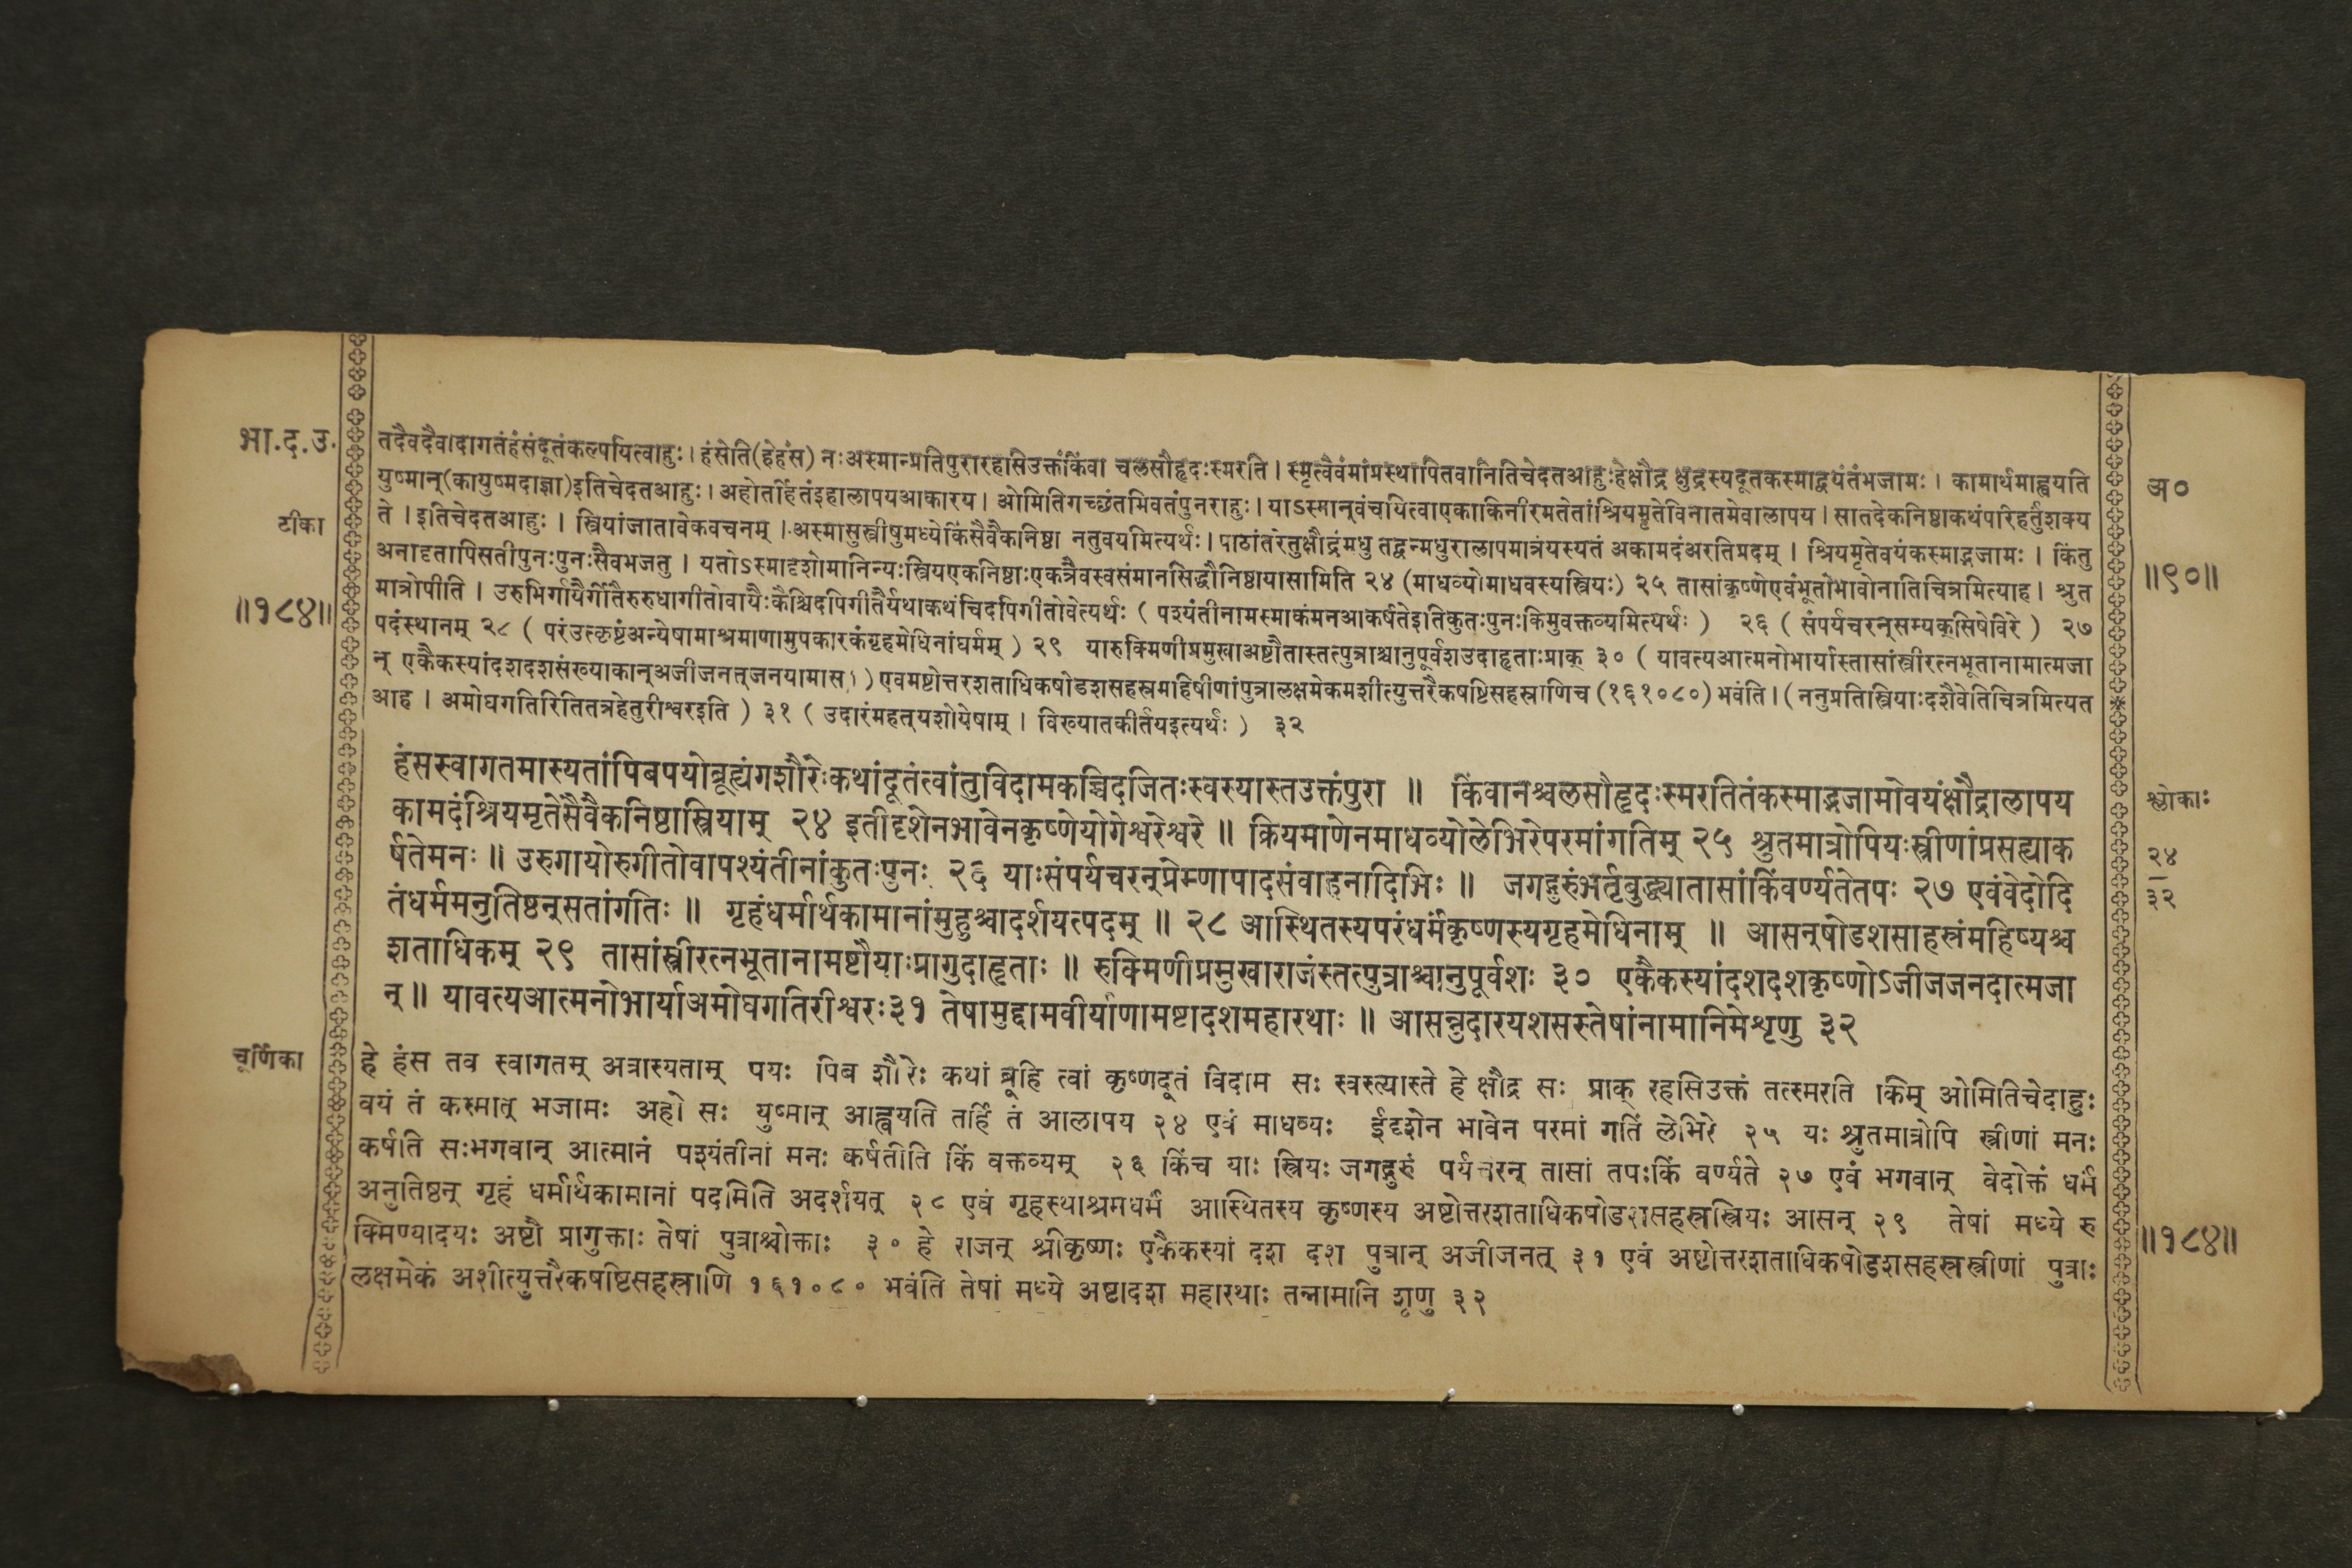 भा.द.उ.
टीका
॥१८४॥
तदैवदैवादागतंहंसंदूतंकल्पयित्वाहुः।हंसेति(हेहंस) नःअस्मान्प्रतिपुरारहसिउक्तंकिंवा चलसौहृदःस्मरति। स्मृत्वैवंमांप्रस्थापितवानितिचेदतआहुःहेक्षौद्र क्षुद्रस्यदूतकस्माद्वयंतंभजामः। कामार्थमाह्वयति
युष्मान्(कायुष्मदाज्ञा)इतिचेदतआहुः। अहोतर्हितंइहालापयआकारय। ओमितिगच्छंतमिवतंपुनराहुः। याऽस्मान्वंचयित्वाएकाकिनीरमतेतांश्रियमृतेविनातमेवालापय। सातदेकनिष्ठाकथंपरिहर्तुंशक्य
ते । इतिचेदतआहुः । स्त्रियांजातावेकवचनम् । अस्मासुस्त्रीषुमध्येकिंसैवैकनिष्ठा नतुवयमित्यर्थः। पाठांतरेतुक्षौद्रंमधु तद्वन्मधुरालापमात्रंयस्यतं अकामदंअरतिप्रदम् । श्रियमृतेवयंकस्माद्भजामः । किंतु
अनादृतापिसतीपुनःपुनःसैवभजतु । यतोऽस्मादृशोमानिन्यःस्त्रियएकनिष्ठाःएकत्रैवस्वसंमानसिद्धौनिष्ठायासामिति २४ (माधव्योमाधवस्यस्त्रियः) २५ तासांकृष्णेएवंभूतोभावोनातिचित्रमित्याह। श्रुत
मात्रोपीति । उरुभिर्गायैर्गीतैरुरुधागीतोवायैःकैश्चिदपिगीतैर्यथाकथंचिदपिगीतोवेत्यर्थः ( पश्यंतीनामस्माकंमनआकर्षतेइतिकुतःपुनःकिमुवक्तव्यमित्यर्थः ) २६ ( संपर्यचरन्सम्यक्सिषेविरे ) २७
पदंस्थानम् २८ ( परंउत्कृष्टंअन्येषामाश्रमाणामुपकारकंगृहमेधिनांधर्मम् ) २९ यारुक्मिणीप्रमुखाअष्टौतास्तत्पुत्राश्चानुपूर्वशउदाहृताःप्राक् ३० ( यावत्यआत्मनोभार्यास्तासांस्त्रीरत्नभूतानामात्मजा
न् एकैकस्यांदशदशसंख्याकान्अजीजनत्जनयामास।) एवमष्टोत्तरशताधिकषोडशसहस्रमहिषीणांपुत्रालक्षमेकमशीत्युत्तरैकषष्टिसहस्राणिच (१६१०८०) भवंति। (ननुप्रतिस्त्रियाःदशैवेतिचित्रमित्यत
आह । अमोघगतिरितितत्रहेतुरीश्वरइति ) ३१ ( उदारंमहत्यशोयेषाम् । विख्यातकीर्तयइत्यर्थः ) ३२
हंसस्वागतमास्यतांपिबपयोब्रूह्यंगशौरेःकथांदूतंत्वांनुविदामकच्चिदजितःस्वस्यास्तउक्तंपुरा ॥ किंवानश्चलसौहृदःस्मरतितंकस्माद्भजामोवयंक्षौद्रालापय
कामदंश्रियमृतेसैवैकनिष्ठास्त्रियाम् २४ इतीदृशेनभावेनकृष्णेयोगेश्वरेश्वरे ॥ क्रियमाणेनमाधव्योलेभिरेपरमांगतिम् २५ श्रुतमात्रोपियःस्त्रीणांप्रसह्याक
र्षतेमनः ॥ उरुगायोरुगीतोवापश्यंतीनांकुतःपुनः २६ याःसंपर्यचरन्प्रेम्णापादसंवाहनादिभिः ॥ जगद्गुरुंभर्तृबुद्ध्यातासांकिंवर्ण्यतेतपः २७ एवंवेदोदि
तंधर्ममनुतिष्ठन्सतांगतिः ॥ गृहंधर्मार्थकामानांमुहुश्चादर्शयत्पदम् ॥ २८ आस्थितस्यपरंधर्मंकृष्णस्यगृहमेधिनाम् ॥ आसन्षोडशसाहस्रंमहिष्यश्च
शताधिकम् २९ तासांस्त्रीरत्नभूतानामष्टौयाःप्रागुदाहृताः ॥ रुक्मिणीप्रमुखाराजंस्तत्पुत्राश्चानुपूर्वशः ३० एकैकस्यांदशदशकृष्णोऽजीजनदात्मजा
न् ॥ यावत्यआत्मनोभार्याअमोघगतिरीश्वरः३१ तेषामुद्दामवीर्याणामष्टादशमहारथाः ॥ आसन्नुदारयशसस्तेषांनामानिमेशृणु ३२
चूर्णिका
हे हंस तव स्वागतम् अत्रास्यताम् पयः पिब शौरेः कथां ब्रूहि त्वां कृष्णदूतं विदाम सः स्वस्त्यास्ते हे क्षौद्र सः प्राक् रहसिउक्तं तत्स्मरति किम् ओमितिचेदाहुः
वयं तं कस्मात् भजामः अहो सः युष्मान् आह्वयति तर्हि तं आलापय २४ एवं माधव्यः ईदृशेन भावेन परमां गतिं लेभिरे २५ यः श्रुतमात्रोपि स्त्रीणां मनः
कर्षति सःभगवान् आत्मानं पश्यंतीनां मनः कर्षतीति किं वक्तव्यम् २६ किंच याः स्त्रियः जगद्गुरुं पर्यचरन् तासां तपःकिं वर्ण्यते २७ एवं भगवान् वेदोक्तं धर्मं
अनुतिष्ठन् गृहं धर्मार्थकामानां पदमिति अदर्शयत् २८ एवं गृहस्थाश्रमधर्मं आस्थितस्य कृष्णस्य अष्टोत्तरशताधिकषोडशसहस्रस्त्रियः आसन् २९ तेषां मध्ये रु
क्मिण्यादयः अष्टौ प्रागुक्ताः तेषां पुत्राश्चोक्ताः ३० हे राजन् श्रीकृष्णः एकैकस्यां दश दश पुत्रान् अजीजनत् ३१ एवं अष्टोत्तरशताधिकषोडशसहस्रस्त्रीणां पुत्राः
लक्षमेकं अशीत्युत्तरैकषष्टिसहस्राणि १६१०८० भवंति तेषां मध्ये अष्टादश महारथाः तन्नामानि शृणु ३२
अ०
॥९०॥
श्लोकाः
२४
३२
॥१८४॥